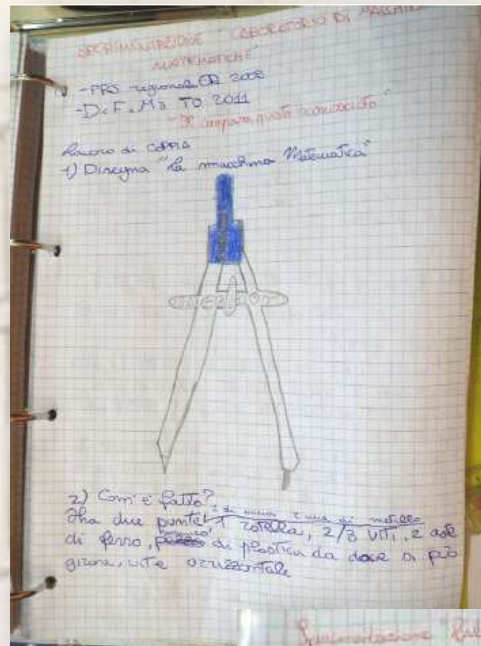 SPERIMENTAZIONE "LABORATORIO DI MACCHINE
MATEMATICHE"
- PRS regionale ER 2008
- D.i.F.Ma. TO 2011
"Il compasso, questo sconosciuto"
Lavoro di COPPIA
1) Disegna "la macchina Matematica"
2) Com'è fatto?
1 di mina e una di metallo
Ha due punte, 1 rotella, 2/3 viti, 2 aste
di ferro, di plastica da dove si può
girare, vite orizzontale
Sperimentazione